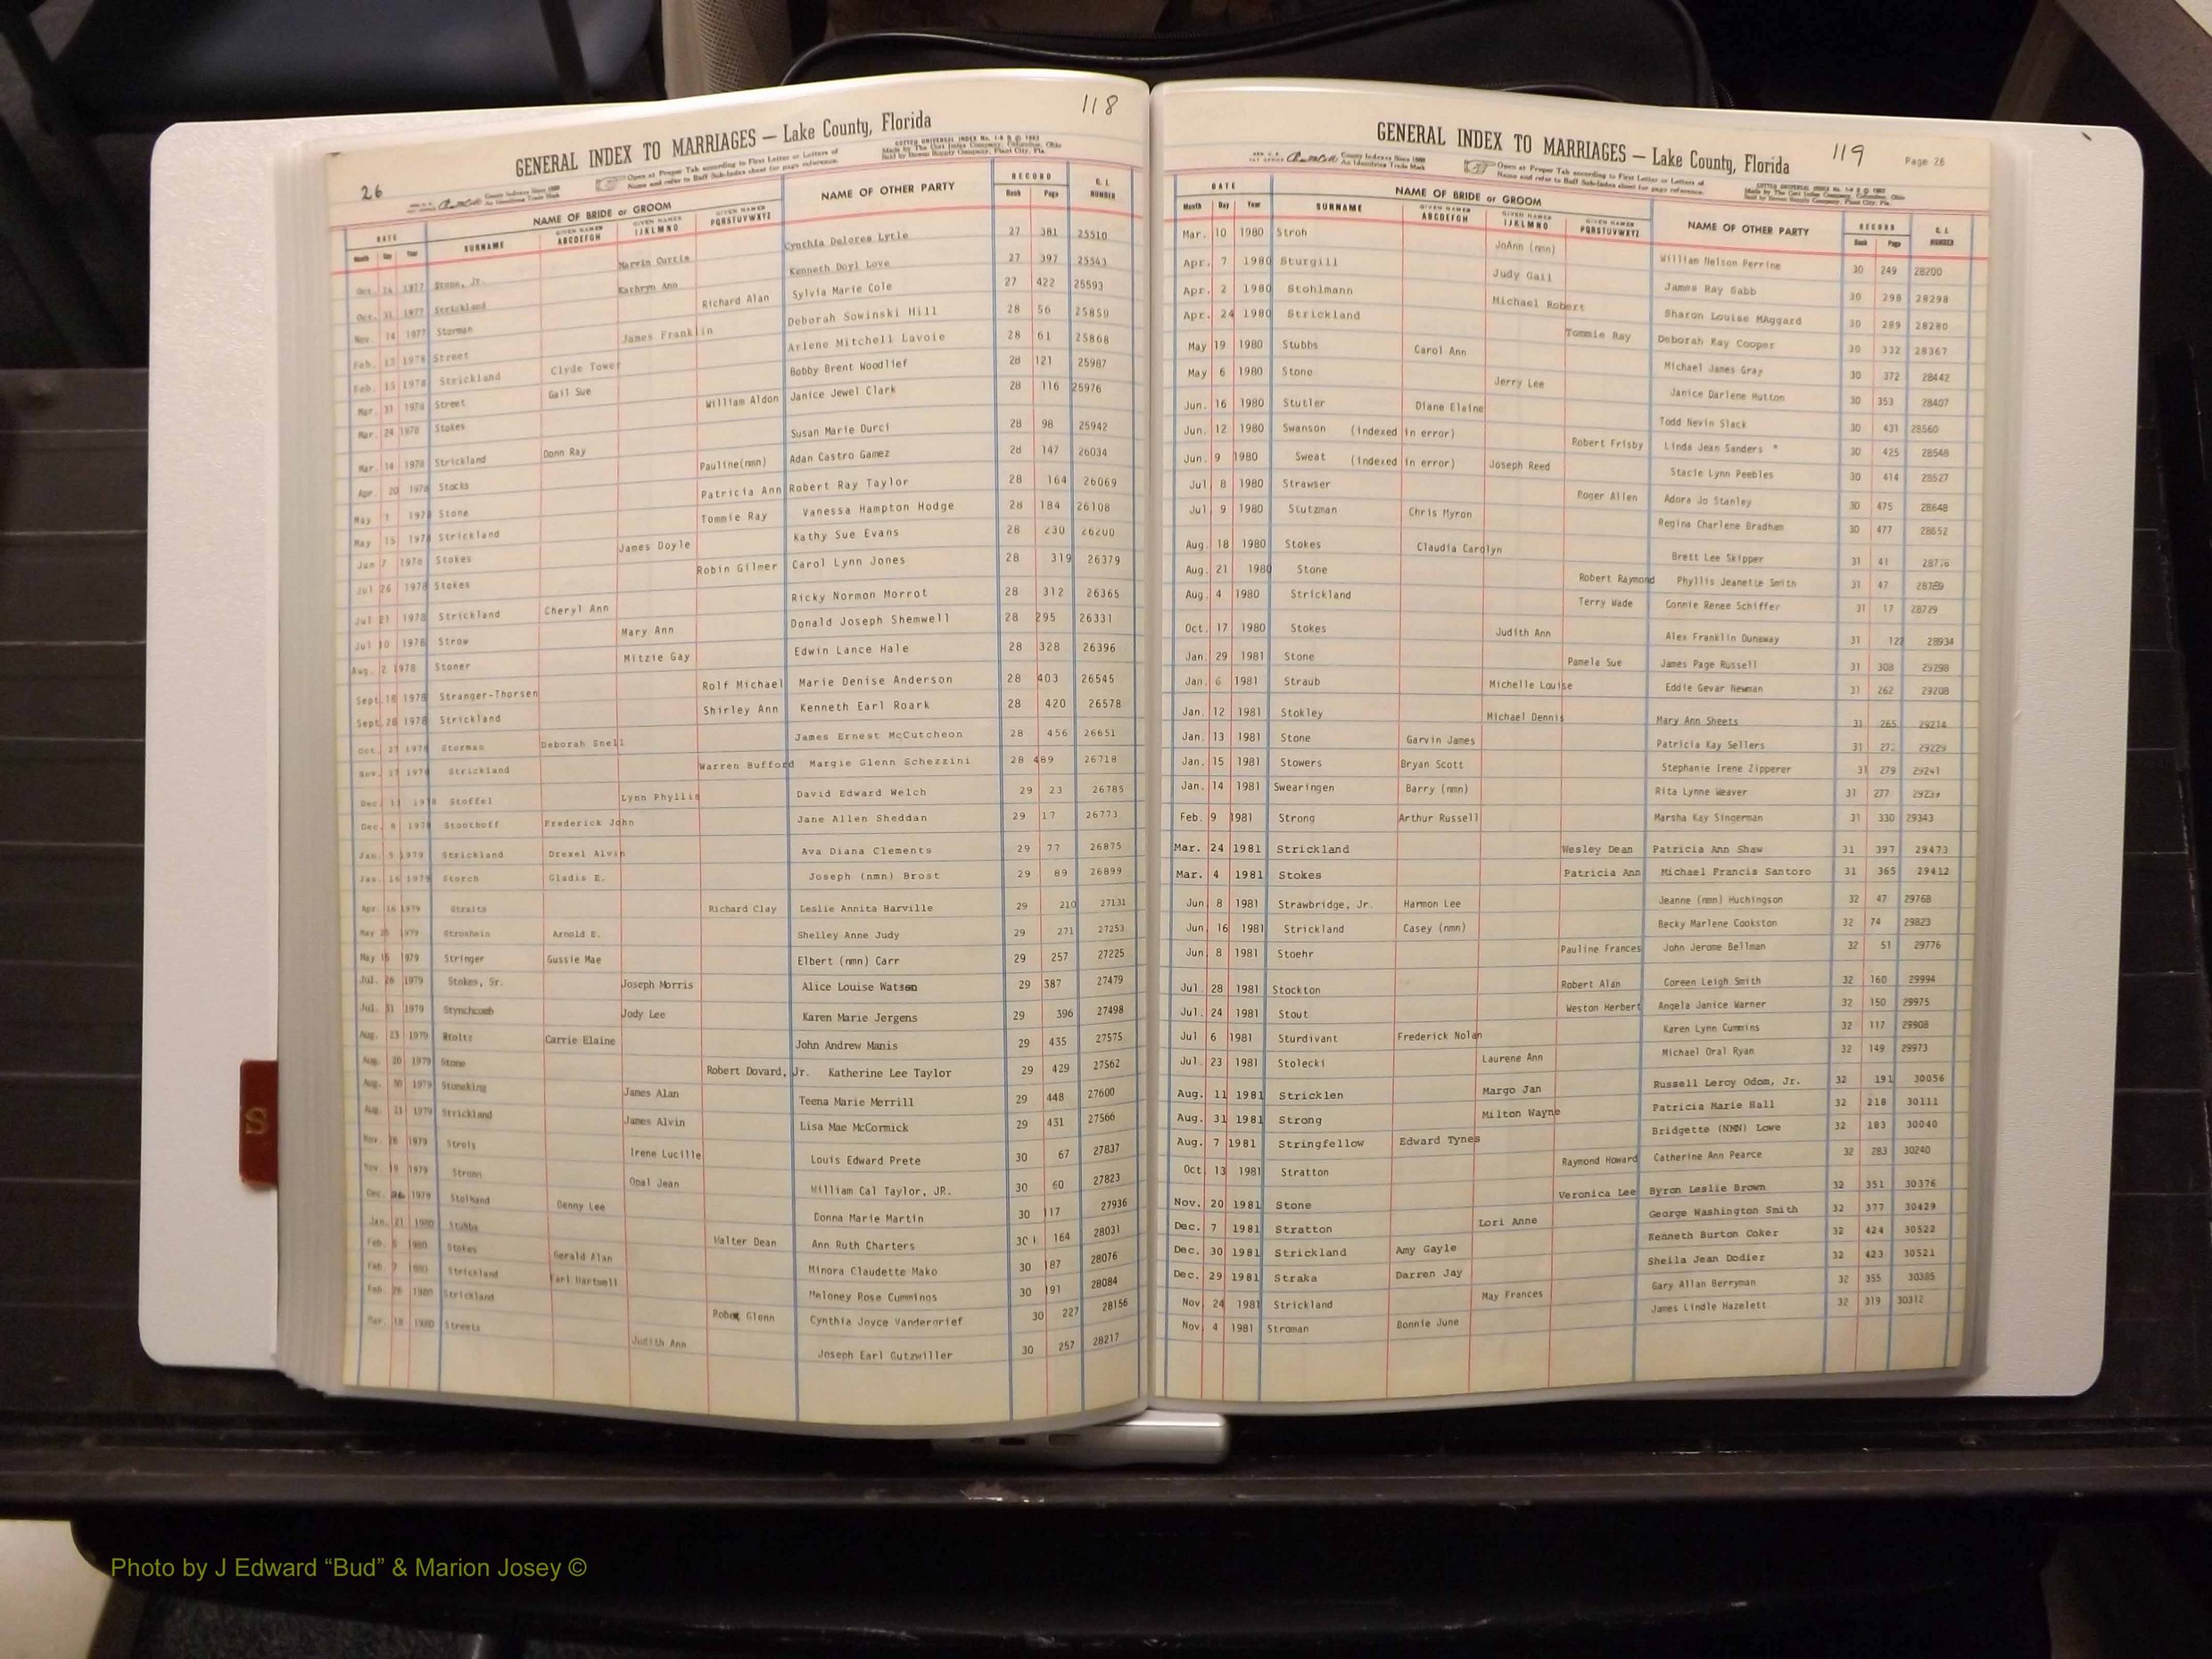 118
GENERAL INDEX TO MARRIAGES — Lake County, Florida
26
Open at Proper Tab according to First Letter or Letters of
Name and refer to Buff Sub-Index sheet for page reference.
DATE NAME OF BRIDE or GROOM NAME OF OTHER PARTY RECORD G. I. NUMBER
Month Day Year SURNAME GIVEN NAMES ABCDEFGH GIVEN NAMES IJKLMNO GIVEN NAMES PQRSTUVWXYZ Book Page
Oct. 14 1977 Stone, Jr. Marvin Curtis Cynthia Delores Lytle 27 381 25510
Oct. 31 1977 Strickland Kathryn Ann Kenneth Doyl Love 27 397 25543
Nov. 14 1977 Storman Richard Alan Sylvia Marie Cole 27 422 25593
Feb. 13 1978 Street James Franklin Deborah Sowinski Hill 28 56 25859
Feb. 15 1978 Strickland Clyde Tower Arlene Mitchell Lavoie 28 61 25868
Mar. 31 1978 Street Gail Sue Bobby Brent Woodlief 28 121 25987
Mar. 24 1978 Stokes William Aldon Janice Jewel Clark 28 116 25976
Mar. 14 1978 Strickland Donn Ray Susan Marie Durci 28 98 25942
Apr. 20 1978 Stocks Pauline(nmn) Adan Castro Gamez 28 147 26034
May 1 1978 Stone Patricia Ann Robert Ray Taylor 28 164 26069
May 15 1978 Strickland Tommie Ray Vanessa Hampton Hodge 28 184 26108
Jun 7 1978 Stokes James Doyle Kathy Sue Evans 28 230 26200
Jul 26 1978 Stokes Robin Gilmer Carol Lynn Jones 28 319 26379
Jul 21 1978 Strickland Cheryl Ann Ricky Normon Morrot 28 312 26365
Jul 10 1978 Strow Mary Ann Donald Joseph Shemwell 28 295 26331
Aug. 2 1978 Stoner Mitzie Gay Edwin Lance Hale 28 328 26396
Sept. 18 1978 Stranger-Thorsen Rolf Michael Marie Denise Anderson 28 403 26545
Sept. 28 1978 Strickland Shirley Ann Kenneth Earl Roark 28 420 26578
Oct. 27 1978 Storman Deborah Snell James Ernest McCutcheon 28 456 26651
Nov. 1978 Strickland Warren Bufford Margie Glenn Schezzini 28 489 26718
Dec. 1978 Stoffel Lynn Phyllis David Edward Welch 29 23 26785
Dec. 8 1978 Stoothoff Frederick John Jane Allen Sheddan 29 17 26773
Jan. 5 1979 Strickland Drexel Alvin Ava Diana Clements 29 77 26875
Jan. 16 1979 Storch Gladis E. Joseph (nmn) Brost 29 89 26899
Apr. 16 1979 Straits Richard Clay Leslie Annita Harville 29 210 27131
May 1979 Stroxhein Arnold E. Shelley Anne Judy 29 271 27253
May 1979 Stringer Gussie Mae Elbert (nmn) Carr 29 257 27225
Jul. 26 1979 Stokes, Sr. Joseph Morris Alice Louise Watson 29 387 27479
Jul. 31 1979 Stynchcomb Jody Lee Karen Marie Jergens 29 396 27498
Aug. 23 1979 Carrie Elaine John Andrew Manis 29 435 27575
Aug. 20 1979 Stone Robert Dovard, Jr. Katherine Lee Taylor 29 429 27562
Aug. 30 1979 Stoneking James Alan Teena Marie Merrill 29 448 27600
Aug. 21 1979 Strickland James Alvin Lisa Mae McCormick 29 431 27566
Nov. 26 1979 Strois Irene Lucille Louis Edward Prete 30 67 27837
Nov. 19 1979 Strann Opal Jean William Cal Taylor, JR. 30 60 27823
Dec. 26 1979 Stolhand Denny Lee Donna Marie Martin 30 117 27936
Jan. 21 1980 Stubbs Walter Dean Ann Ruth Charters 30 164 28031
Feb. 1980 Stokes Gerald Alan Minora Claudette Mako 30 187 28076
Feb 7 1980 Strickland Earl Hartwell Meloney Rose Cummings 30 191 28084
Feb. 26 1980 Strickland Glenn Cynthia Joyce Vandergrief 30 227 28156
Mar. 18 1980 Streets Judith Ann Joseph Earl Gutzwiller 30 257 28217
S
119
GENERAL INDEX TO MARRIAGES — Lake County, Florida
Page 26
Open at Proper Tab according to First Letter or Letters of
Name and refer to Buff Sub-Index sheet for page reference.
DATE NAME OF BRIDE or GROOM NAME OF OTHER PARTY RECORD G. I. NUMBER
Month Day Year SURNAME GIVEN NAMES ABCDEFGH GIVEN NAMES IJKLMNO GIVEN NAMES PQRSTUVWXYZ Book Page
Mar. 10 1980 Stroh JoAnn (nmn) William Nelson Perrine 30 249 28200
Apr. 7 1980 Sturgill Judy Gail James Ray Gabb 30 298 28298
Apr. 2 1980 Stohlmann Michael Robert Sharon Louise MAggard 30 289 28280
Apr. 24 1980 Strickland Tommie Ray Deborah Kay Cooper 30 332 28367
May 19 1980 Stubbs Carol Ann Michael James Gray 30 372 28442
May 6 1980 Stone Jerry Lee Janice Darlene Hutton 30 353 28407
Jun. 16 1980 Stutler Diane Elaine Todd Nevin Slack 30 431 28560
Jun. 12 1980 Swanson (indexed in error) Robert Frisby Linda Jean Sanders * 30 425 28548
Jun. 9 1980 Sweat (indexed in error) Joseph Reed Stacie Lynn Peebles 30 414 28527
Jul 8 1980 Strawser Roger Allen Adora Jo Stanley 30 475 28648
Jul 9 1980 Stutzman Chris Myron Regina Charlene Bradham 30 477 28652
Aug. 18 1980 Stokes Claudia Carolyn Brett Lee Skipper 31 41 28776
Aug. 21 1980 Stone Robert Raymond Phyllis Jeanette Smith 31 47 28789
Aug. 4 1980 Strickland Terry Wade Connie Renee Schiffer 31 17 28729
Oct. 17 1980 Stokes Judith Ann Alex Franklin Dunaway 31 122 28934
Jan. 29 1981 Stone Pamela Sue James Page Russell 31 308 29298
Jan. 6 1981 Straub Michelle Louise Eddie Gevar Newman 31 262 29208
Jan. 12 1981 Stokley Michael Dennis Mary Ann Sheets 31 265 29214
Jan. 13 1981 Stone Garvin James Patricia Kay Sellers 31 29229
Jan. 15 1981 Stowers Bryan Scott Stephanie Irene Zipperer 31 279 29241
Jan. 14 1981 Swearingen Barry (nmn) Rita Lynne Weaver 31 277 29239
Feb. 9 1981 Strong Arthur Russell Marsha Kay Singerman 31 330 29343
Mar. 24 1981 Strickland Wesley Dean Patricia Ann Shaw 31 397 29473
Mar. 4 1981 Stokes Patricia Ann Michael Francis Santoro 31 365 29412
Jun 8 1981 Strawbridge, Jr. Harmon Lee Jeanne (nmn) Huchingson 32 47 29768
Jun. 16 1981 Strickland Casey (nmn) Becky Marlene Cookston 32 74 29823
Jun 8 1981 Stoehr Pauline Frances John Jerome Bellman 32 51 29776
Jul. 28 1981 Stockton Robert Alan Coreen Leigh Smith 32 160 29994
Jul. 24 1981 Stout Weston Herbert Angela Janice Warner 32 150 29975
Jul 6 1981 Sturdivant Frederick Nolan Karen Lynn Cummins 32 117 29908
Jul. 23 1981 Stolecki Laurene Ann Michael Oral Ryan 32 149 29973
Aug. 11 1981 Stricklen Margo Jan Russell Leroy Odom, Jr. 32 191 30056
Aug. 31 1981 Strong Milton Wayne Patricia Marie Hall 32 218 30111
Aug. 7 1981 Stringfellow Edward Tynes Bridgette (NMN) Lowe 32 183 30040
Oct. 13 1981 Stratton Raymond Howard Catherine Ann Pearce 32 283 30240
Nov. 20 1981 Stone Veronica Lee Byron Leslie Brown 32 351 30376
Dec. 7 1981 Stratton Lori Anne George Washington Smith 32 377 30429
Dec. 30 1981 Strickland Amy Gayle Kenneth Burton Coker 32 424 30522
Dec. 29 1981 Straka Darren Jay Sheila Jean Dodier 32 423 30521
Nov. 24 1981 Strickland May Frances Gary Allan Berryman 32 355 30385
Nov. 4 1981 Stroman Bonnie June James Lindle Hazelett 32 319 30312
Photo by J Edward “Bud” & Marion Josey ©